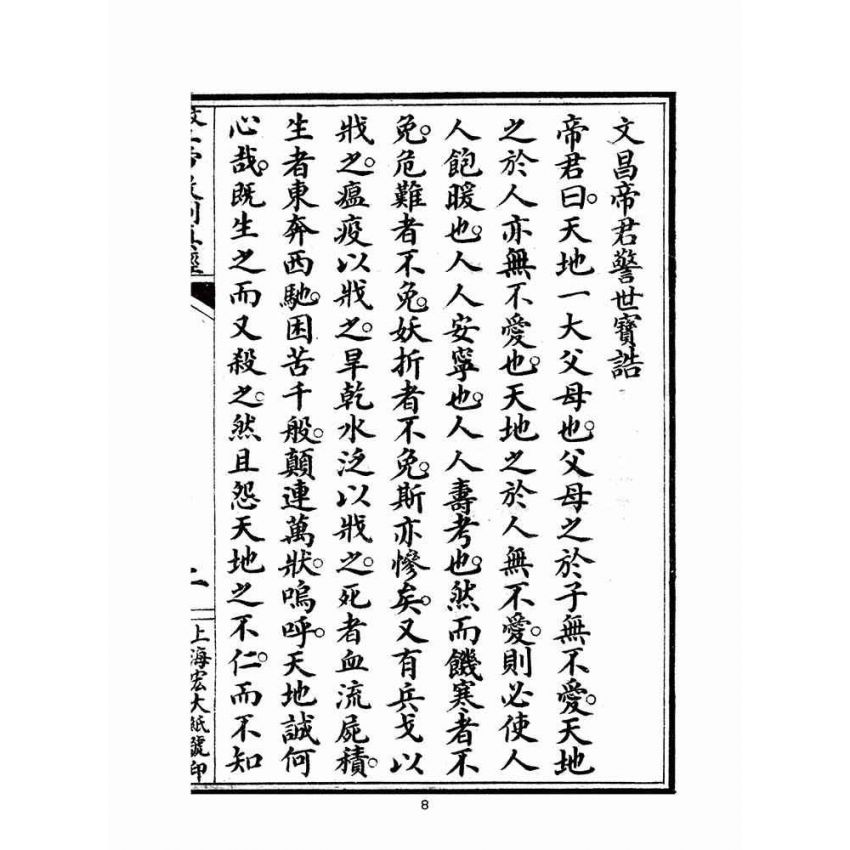 文昌帝君警世寶誥
帝君曰。天地一大父母也。父母之於子無不愛。天地
之於人亦無不愛也。天地之於人無不愛。則必使人
人飽暖也。人人安寧也。人人壽考也。然而饑寒者不
免。危難者不免。妖折者不免。斯亦慘矣。又有兵戈以
戕之。瘟疫以戕之。旱乾水泛以戕之。死者血流屍積。
生者東奔西馳。困苦千般。顛連萬狀。嗚呼。天地誠何
心哉。既生之而又殺之。然且怨天地之不仁。而不知
上海宏大紙號印
8